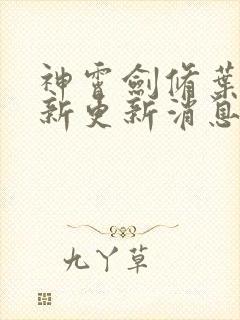 神霄劍脩葉
新更新消息
九丫草